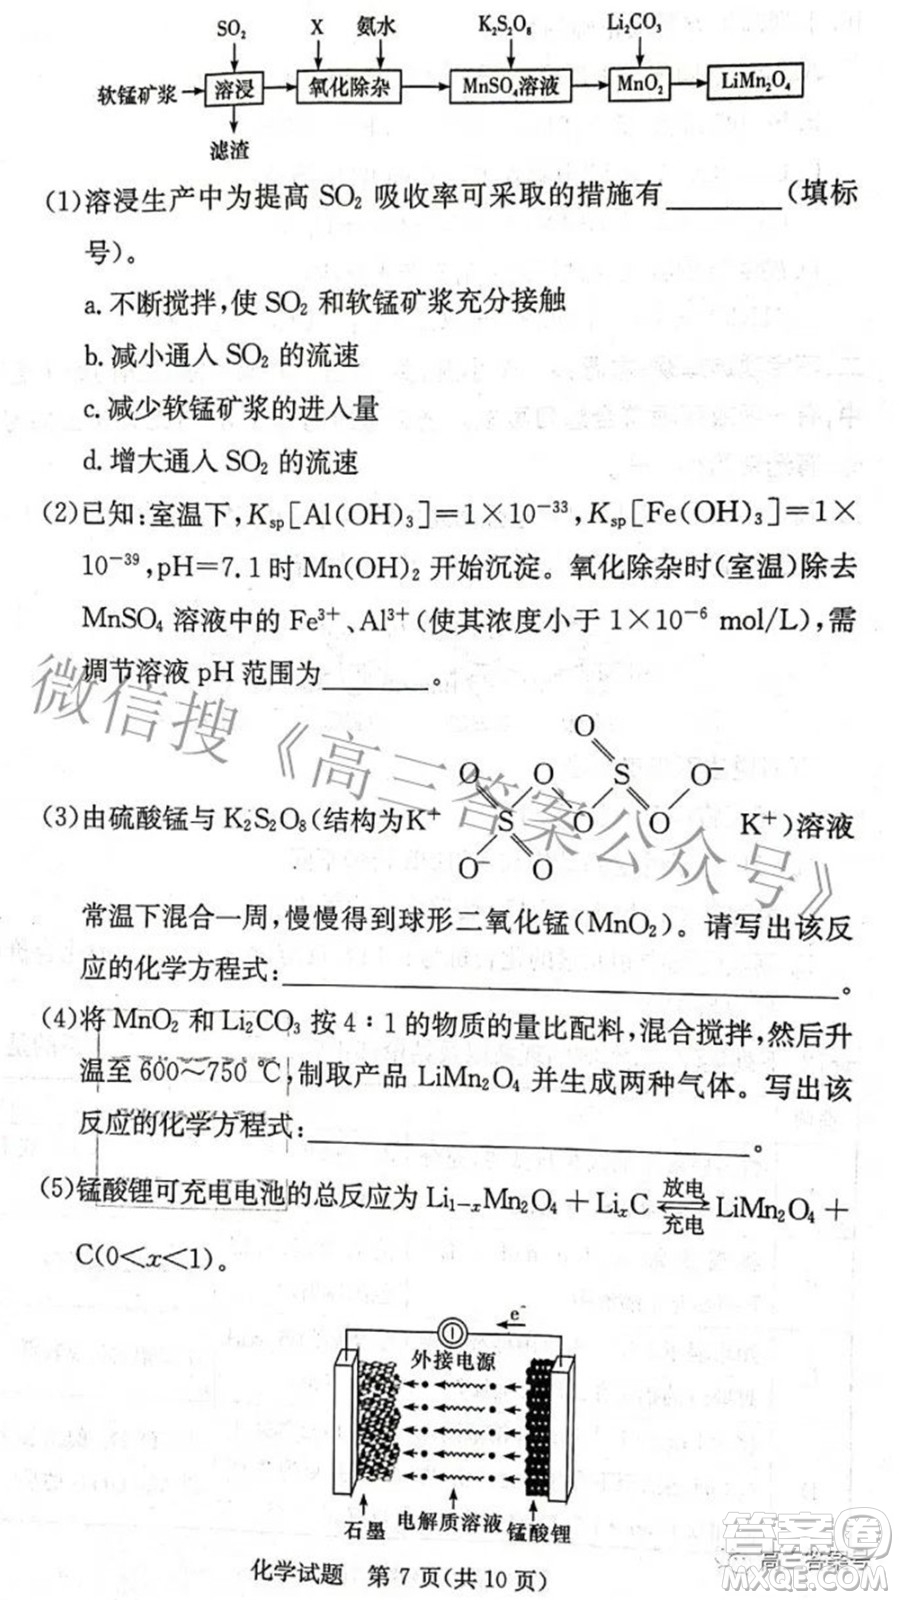 SO₂ X 氨水 K₂S₂O₈ Li₂CO₃
软锰矿浆 溶浸 氧化除杂 MnSO₄溶液 MnO₂ LiMn₂O₄
滤渣
(1)溶浸生产中为提高 SO₂ 吸收率可采取的措施有________(填标
号)。
a. 不断搅拌,使 SO₂ 和软锰矿浆充分接触
b. 减小通入 SO₂ 的流速
c. 减少软锰矿浆的进入量
d. 增大通入 SO₂ 的流速
(2)已知:室温下,Ksp[Al(OH)₃]=1×10⁻³³,Ksp[Fe(OH)₃]=1×
10⁻³⁹,pH=7.1时Mn(OH)₂开始沉淀。氧化除杂时(室温)除去
MnSO₄ 溶液中的 Fe³⁺、Al³⁺(使其浓度小于 1×10⁻⁶ mol/L),需
调节溶液 pH 范围为________。
O O O O⁻ O S
(3)由硫酸锰与 K₂S₂O₈(结构为K⁺ S O O K⁺)溶液
O⁻ O
常温下混合一周,慢慢得到球形二氧化锰(MnO₂)。请写出该反
应的化学方程式:________________。
(4)将 MnO₂ 和 Li₂CO₃ 按 4∶1 的物质的量比配料,混合搅拌,然后升
温至 600~750 ℃,制取产品 LiMn₂O₄ 并生成两种气体。写出该
反应的化学方程式:________________。
(5)锰酸锂可充电电池的总反应为 Li₁₋ₓMn₂O₄+LiₓC ⇌ LiMn₂O₄+
放电
充电
C(0<x<1)。
e⁻
外接电源
石墨 电解质溶液 锰酸锂
化学试题 第 7 页(共 10 页)
微信搜《高三答案公众号》
答案圈
高三答案号
MXQE.COM